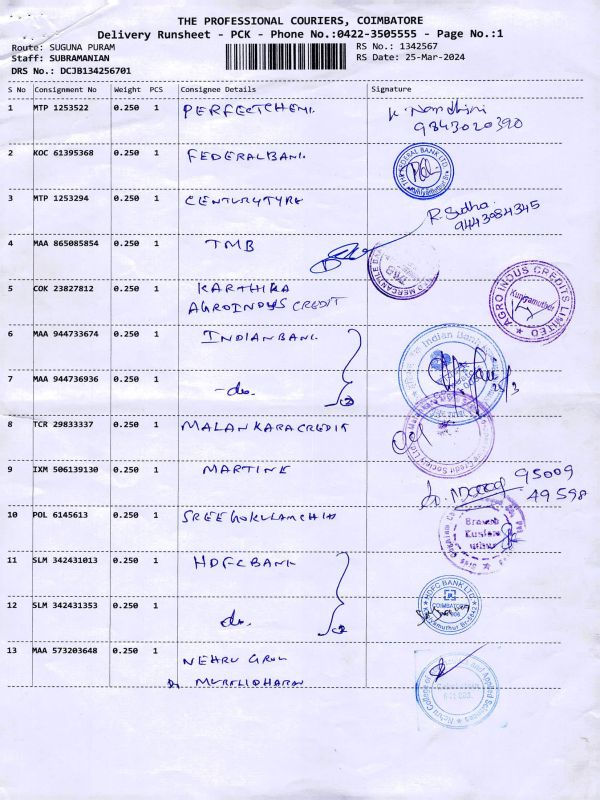 THE PROFESSIONAL COURIERS, COIMBATORE
Delivery Runsheet - PCK - Phone No.:0422-3505555 - Page No.:1
Route: SUGUNA PURAM
Staff: SUBRAMANIAN
DRS No.: DCJB134256701
RS No.: 1342567
RS Date: 25-Mar-2024
S No Consignment No Weight PCS Consignee Details Signature
1 MTP 1253522 0.250 1 PERFECTCHEM. K. Nandhini
9843020390
2 KOC 61395368 0.250 1 FEDERALBANK THE FEDERAL BANK LTD
3 MTP 1253294 0.250 1 CENTURYTYRE R. Sudha
9443084345
4 MAA 865085854 0.250 1 TMB MERCANTILE
5 COK 23827812 0.250 1 KARTHIKA
AGROINDUS CREDIT AGRO INDUS CREDITS LIMITED
Kuniyamuthur
6 MAA 944733674 0.250 1 INDIANBANK Indian Bank
7 MAA 944736936 0.250 1 -do. (2)
8 TCR 29833337 0.250 1 MALANKARACREDIT Credit Society Ltd
9 IXM 506139130 0.250 1 MARTINE 95009
49598
10 POL 6145613 0.250 1 SREEGOKULAMCHIT Branch
11 SLM 342431013 0.250 1 HDFCBANK HDFC BANK LTD
COIMBATORE
12 SLM 342431353 0.250 1 do. (2)
13 MAA 573203648 0.250 1 NEHRU GROU
Dr MURALIDHARAN Nehru College of and Applied Sciences